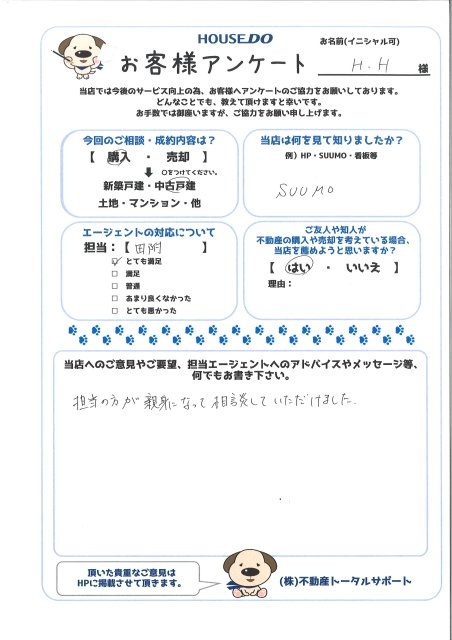 HOUSEDO
お名前(イニシャル可)
お客様アンケート
H.H 様
当店では今後のサービス向上の為、お客様へアンケートのご協力をお願いしております。
どんなことでも、教えて頂けますと幸いです。
お手数では御座いますが、ご協力をお願い申し上げます。
今回のご相談・成約内容は?
【 購入 ・ 売却 】
○をつけてください。
新築戸建・中古戸建
土地・マンション・他
当店は何を見て知りましたか?
例)HP・SUUMO・看板等
SUUMO
エージェントの対応について
担当:【 田附 】
☑ とても満足
□ 満足
□ 普通
□ あまり良くなかった
□ とても悪かった
ご友人や知人が
不動産の購入や売却を考えている場合、
当店を薦めようと思いますか?
【 はい ・ いいえ 】
理由:
当店へのご意見やご要望、担当エージェントへのアドバイスやメッセージ等、
何でもお書き下さい。
担当の方が親身になって相談していただけました.
頂いた貴重なご意見は
HPに掲載させて頂きます。
(株)不動産トータルサポート